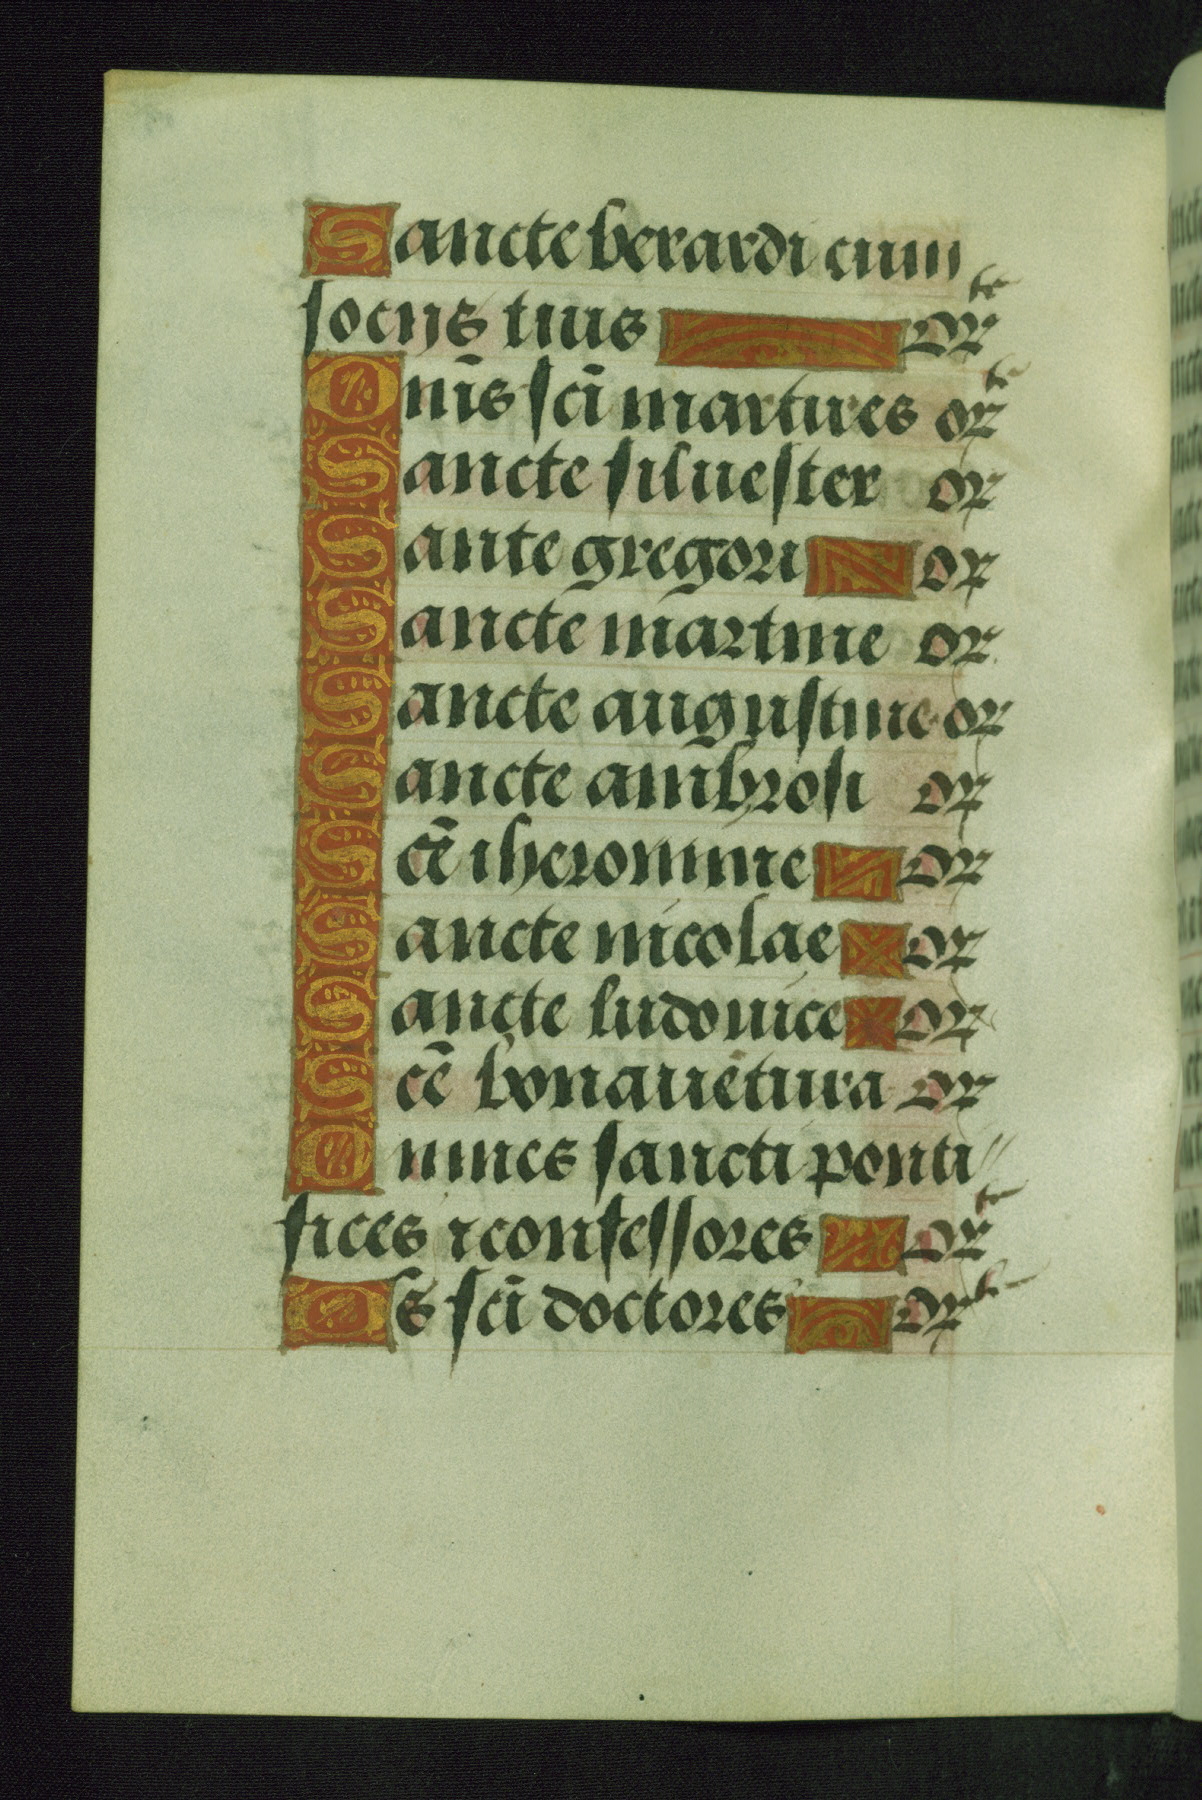 Sancte berardi cum
socijs tuis or te
Onīs scī martires or te
Sancte siluester or
Sante gregori or
Sancte martine or
Sancte augustine or
Sancte ambrosi or
Scē iheronime or
Sancte nicolae or
Sancte ludouice or
Scē bonauētura or
Omnes sancti ponti
fices ⁊ confessores or te
Os scī doctores or te